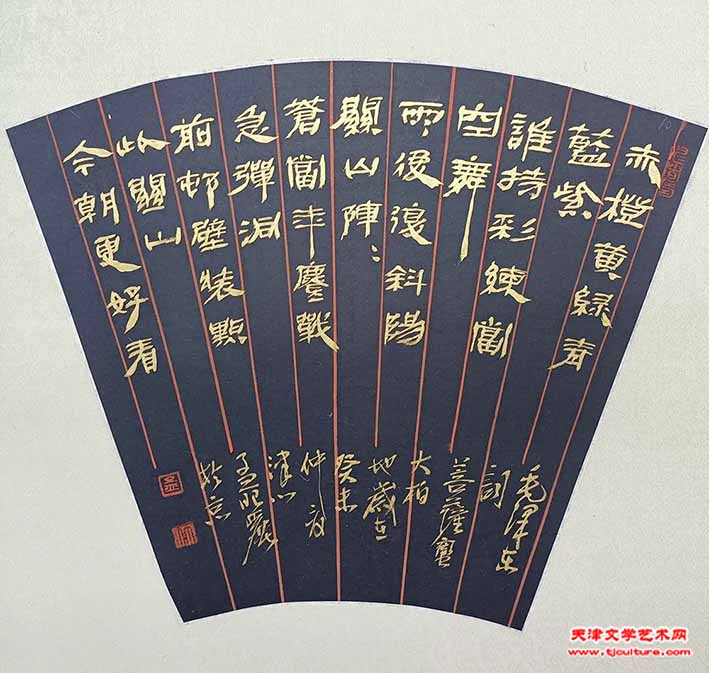 赤橙黃綠青
藍紫
誰持彩練當
空舞
雨後復斜陽
關山陣〻
蒼當年鏖戰
急彈洞
前邨壁裝點
此關山
今朝更好看
毛澤東
詞
菩薩蠻
大柏
地歲在
癸未
仲夏
於京
天津文学艺术网
www.tjculture.com